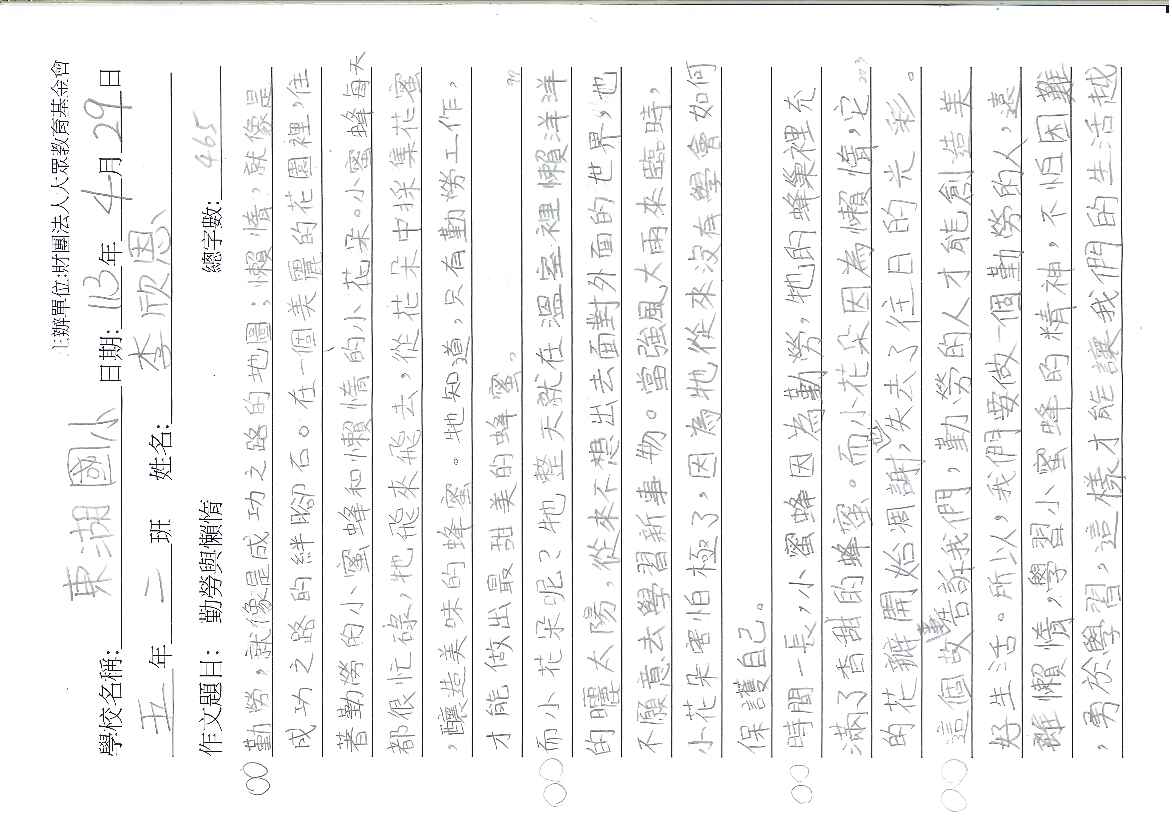 主辦單位:財團法人大眾教育基金會
學校名稱: 東湖國小 日期: 113年 4月 29日
五 年 二 班 姓名: 李欣恩
作文題目: 勤勞與懶惰 總字數: 465
勤勞，就像是成功之路的地圖；懶惰，就像是
成功之路的絆腳石。在一個美麗的花園裡，住
著勤勞的小蜜蜂和懶惰的小花朵。小蜜蜂每天
都很忙碌，牠飛來飛去，從花朵中採集花蜜
，釀造美味的蜂蜜。牠知道，只有勤勞工作，
才能做出最甜美的蜂蜜。
而小花朵呢？牠整天就在溫室裡懶洋洋
的曬太陽，從來不想出去面對外面的世界，也
不願意去學習新事物。當強風大雨來臨時，
小花朵害怕極了，因為牠從來沒有學會如何
保護自己。
時間一長，小蜜蜂因為勤勞，牠的蜂巢裡充
滿了香甜的蜂蜜。而小花朵因為懶惰，它
的花瓣開始凋謝，失去了往日的光彩。
這個故事告訴我們，勤勞的人才能創造美
好生活。所以，我們要做一個勤勞的人，遠
離懶惰，學習小蜜蜂的精神，不怕困難
，勇於學習，這樣才能讓我們的生活越